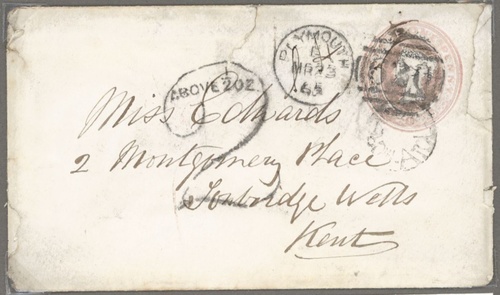 PLYMOUTH
MR 23
ABOVE 2 OZ.
Miss Edwards
2 Montgomery Place
Tonbridge Wells
Kent